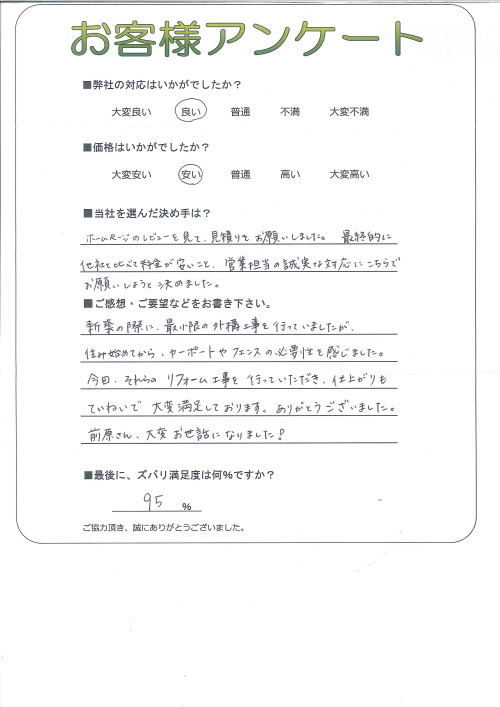 お客様アンケート
■弊社の対応はいかがでしたか？
大変良い 良い 普通 不満 大変不満
■価格はいかがでしたか？
大変安い 安い 普通 高い 大変高い
■当社を選んだ決め手は？
ホームページのレビューを見て、見積りをお願いしました。 最終的に
他社と比べて料金が安いこと、営業担当の誠実な対応にこちらで
お願いしようと決めました。
■ご感想・ご要望などをお書き下さい。
新築の際に、最小限の外構工事を行っていましたが、
住み始めてから、カーポートやフェンスの必要性を感じました。
今回、それらのリフォーム工事を行っていただき、仕上がりも
ていねいで大変満足しております。ありがとうございました。
前原さん、大変お世話になりました！
■最後に、ズバリ満足度は何％ですか？
95 %
ご協力頂き、誠にありがとうございました。